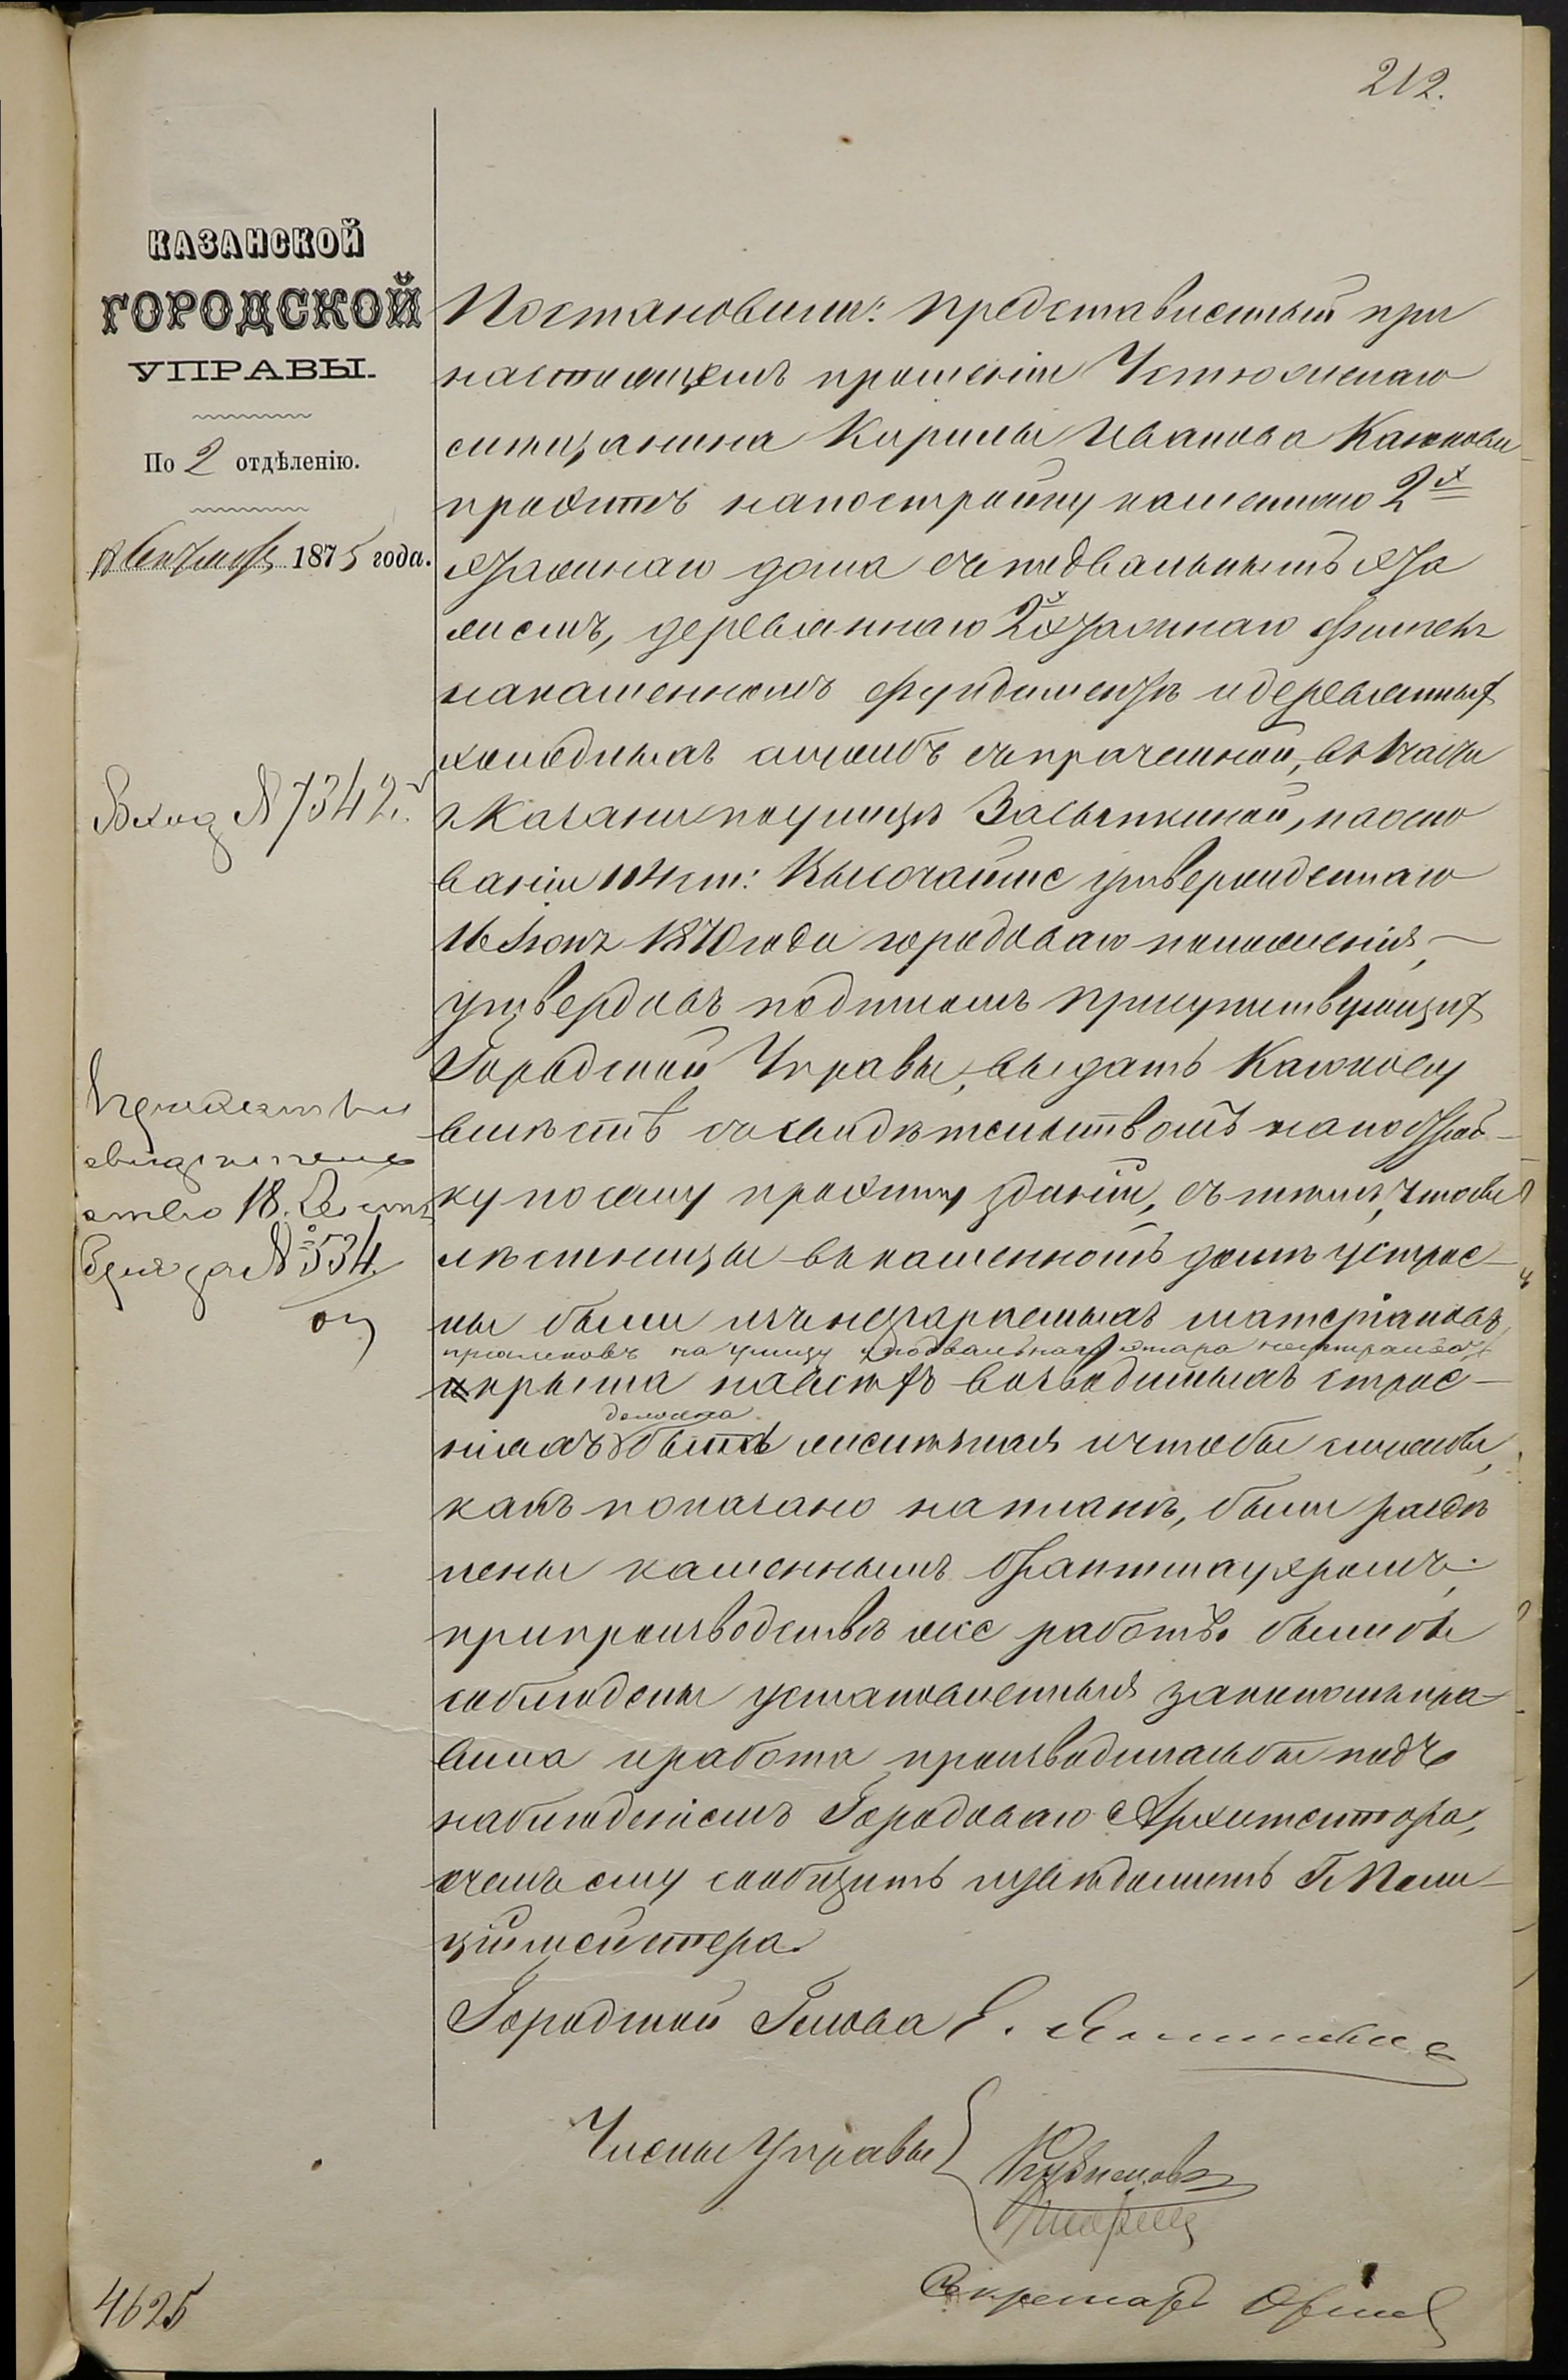 212.
КАЗАНСКОЙ
ГОРОДСКОЙ
УПРАВЫ.
По 2 отдѣленію.
1875 года.
Вход № 7342.
свидѣтель
ство 18. Сент
бря за № 534.
Постановили: представленный при
настоящемъ прошеніи Устюжскаго
мѣщанина Кирилы Иванова Каюкова
проэктъ на постройку каменнаго 2х
этажнаго дома съ подвальнымъ эта
жемъ, деревяннаго 2х этажнаго флигеля
на каменномъ фундаментѣ и деревянных
холодныхъ службъ съ прачешной, въ части
г. Казани по улицѣ Засыпкиной, на осно
ваніи 114 ст: Высочайше утвержденнаго
16 Іюня 1870 года городоваго положенія, –
утвердивъ подписомъ присутствующих
Городской Управы, выдать Каюкову
вмѣстѣ съ свидѣтельствомъ на построй-
ку по сему проэкту зданій, съ тѣмъ, чтобы
лѣстницы въ каменномъ домѣ устрое-
ны были изъ несгараемыхъ матеріаловъ,
приямковъ на улицу у подвальнаго этажа не устраивать
и крыша на всѣхъ возводимыхъ строе-
ніяхъ должна быть желѣзная и чтобы службы,
какъ показано на планѣ, были раздѣ
лены каменнымъ брантмауэромъ;
при производствѣ же работъ были бы
соблюдены установленныя закономъ пра-
вила и работа производилась бы подъ
наблюденіемъ Городоваго Архитектора,
о чемъ ему сообщить и увѣдомить Г. Поли-
ціймейстера.
Городской Голова Е.
Члены Управы
Секретарь
4625